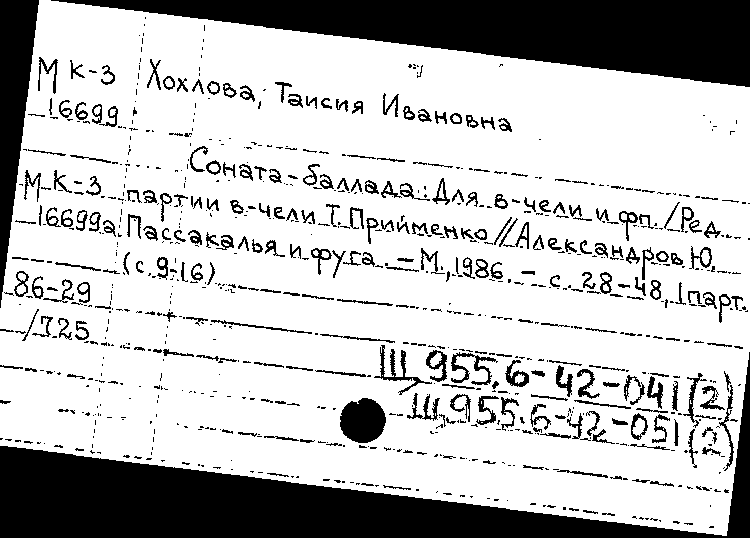 М К-3 Хохлова, Таисия Ивановна
16699
Соната-баллада: Для в-чели и фп. / Ред.
М К-3 партии в-чели Т. Прийменко // Александров Ю.
16699а Пассакалья и фуга. – М., 1986. – с. 28-48, 1 парт.
(с. 9-16)
86-29
/725
III 955.6-42-041 (2)
III 955.6-42-051 (2)